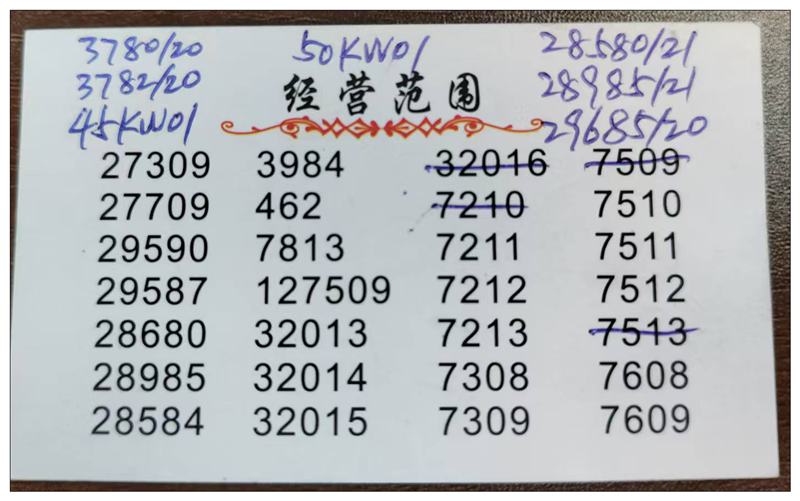 3780/20 50KW01 28580/21
3782/20 经营范围 28985/21
45KW01 29685/20
27309 3984 32016 7509
27709 462 7210 7510
29590 7813 7211 7511
29587 127509 7212 7512
28680 32013 7213 7513
28985 32014 7308 7608
28584 32015 7309 7609